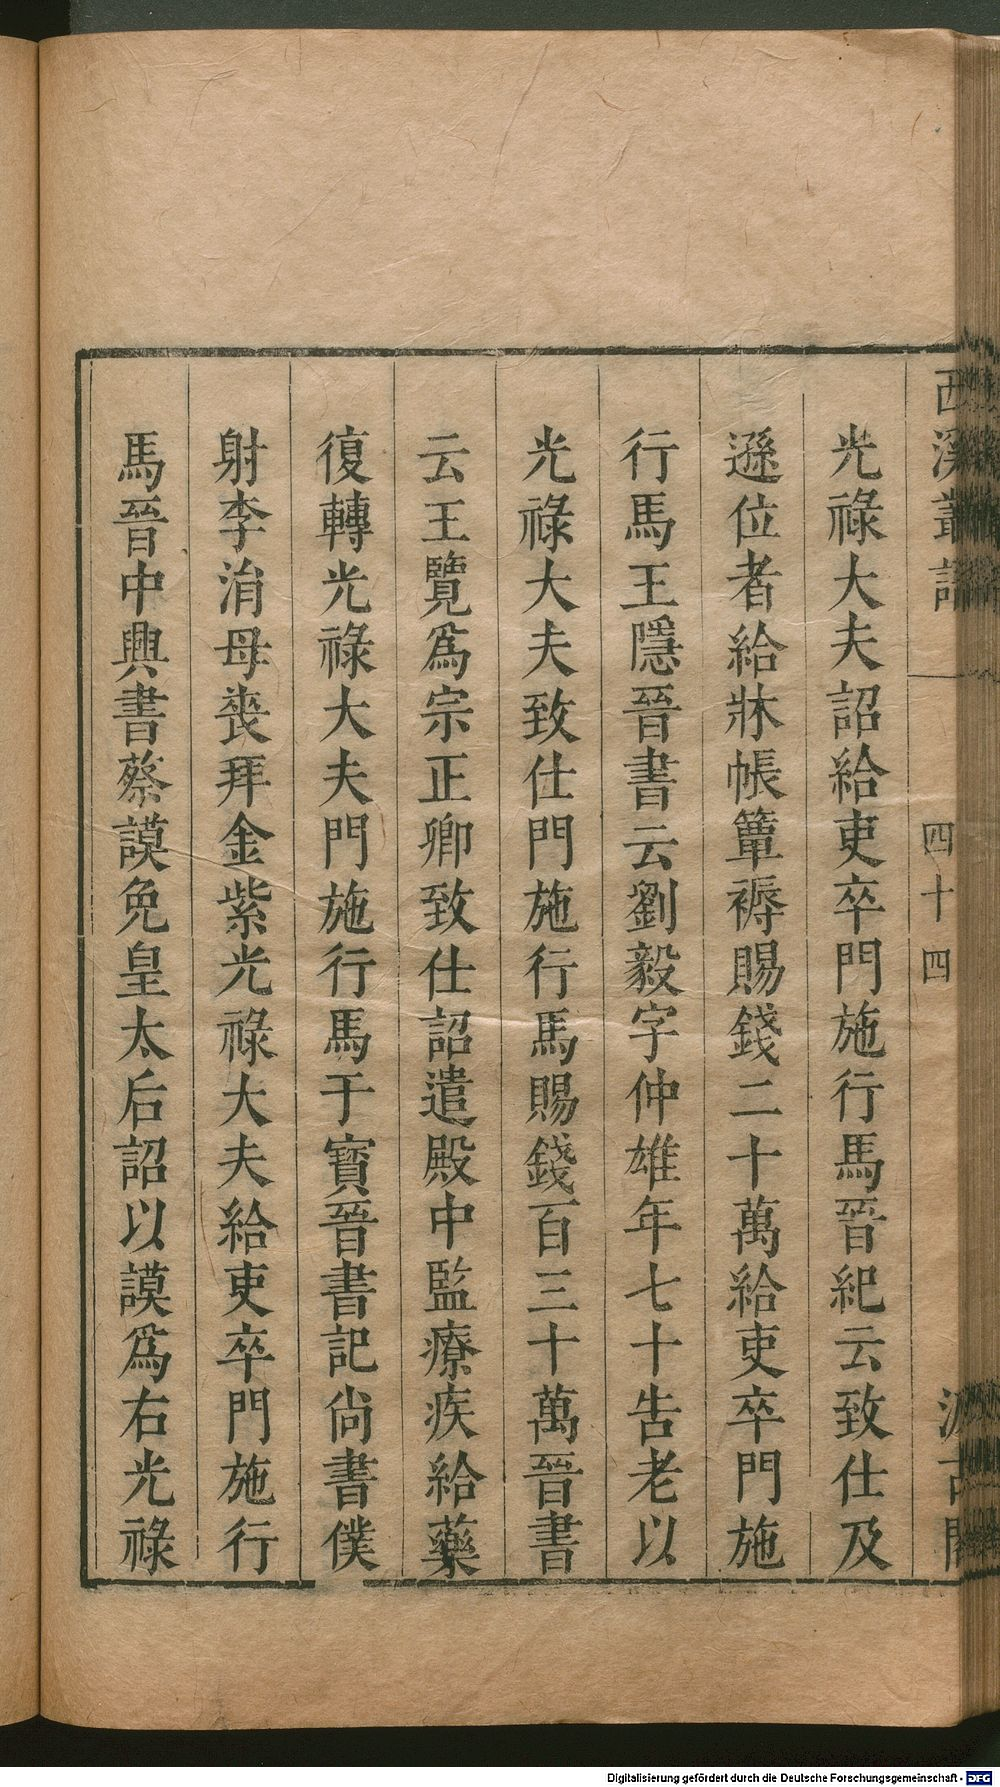 西溪叢語
四十四
汲古閣
光祿大夫詔給吏卒門施行馬晉紀云致仕及
遜位者給牀帳簟褥賜錢二十萬給吏卒門施
行馬王隱晉書云劉毅字仲雄年七十告老以
光祿大夫致仕門施行馬賜錢百三十萬晉書
云王覽爲宗正卿致仕詔遣殿中監療疾給藥
復轉光祿大夫門施行馬于寳晉書記尙書僕
射李涓母喪拜金紫光祿大夫給吏卒門施行
馬晉中興書蔡謨免皇太后詔以謨爲右光祿
Digitalisierung gefördert durch die Deutsche Forschungsgemeinschaft - DFG